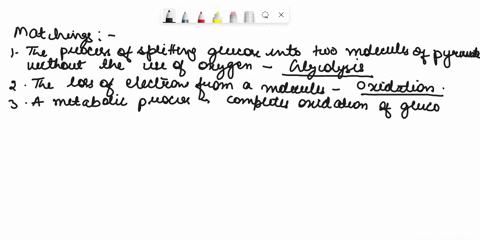 Matchings:-
1. The process of splitting glucose into two molecules of pyruvate
without the use of oxygen - Glycolysis
2. The loss of electron from a molecule - Oxidation.
3. A metabolic process completes oxidation of gluco